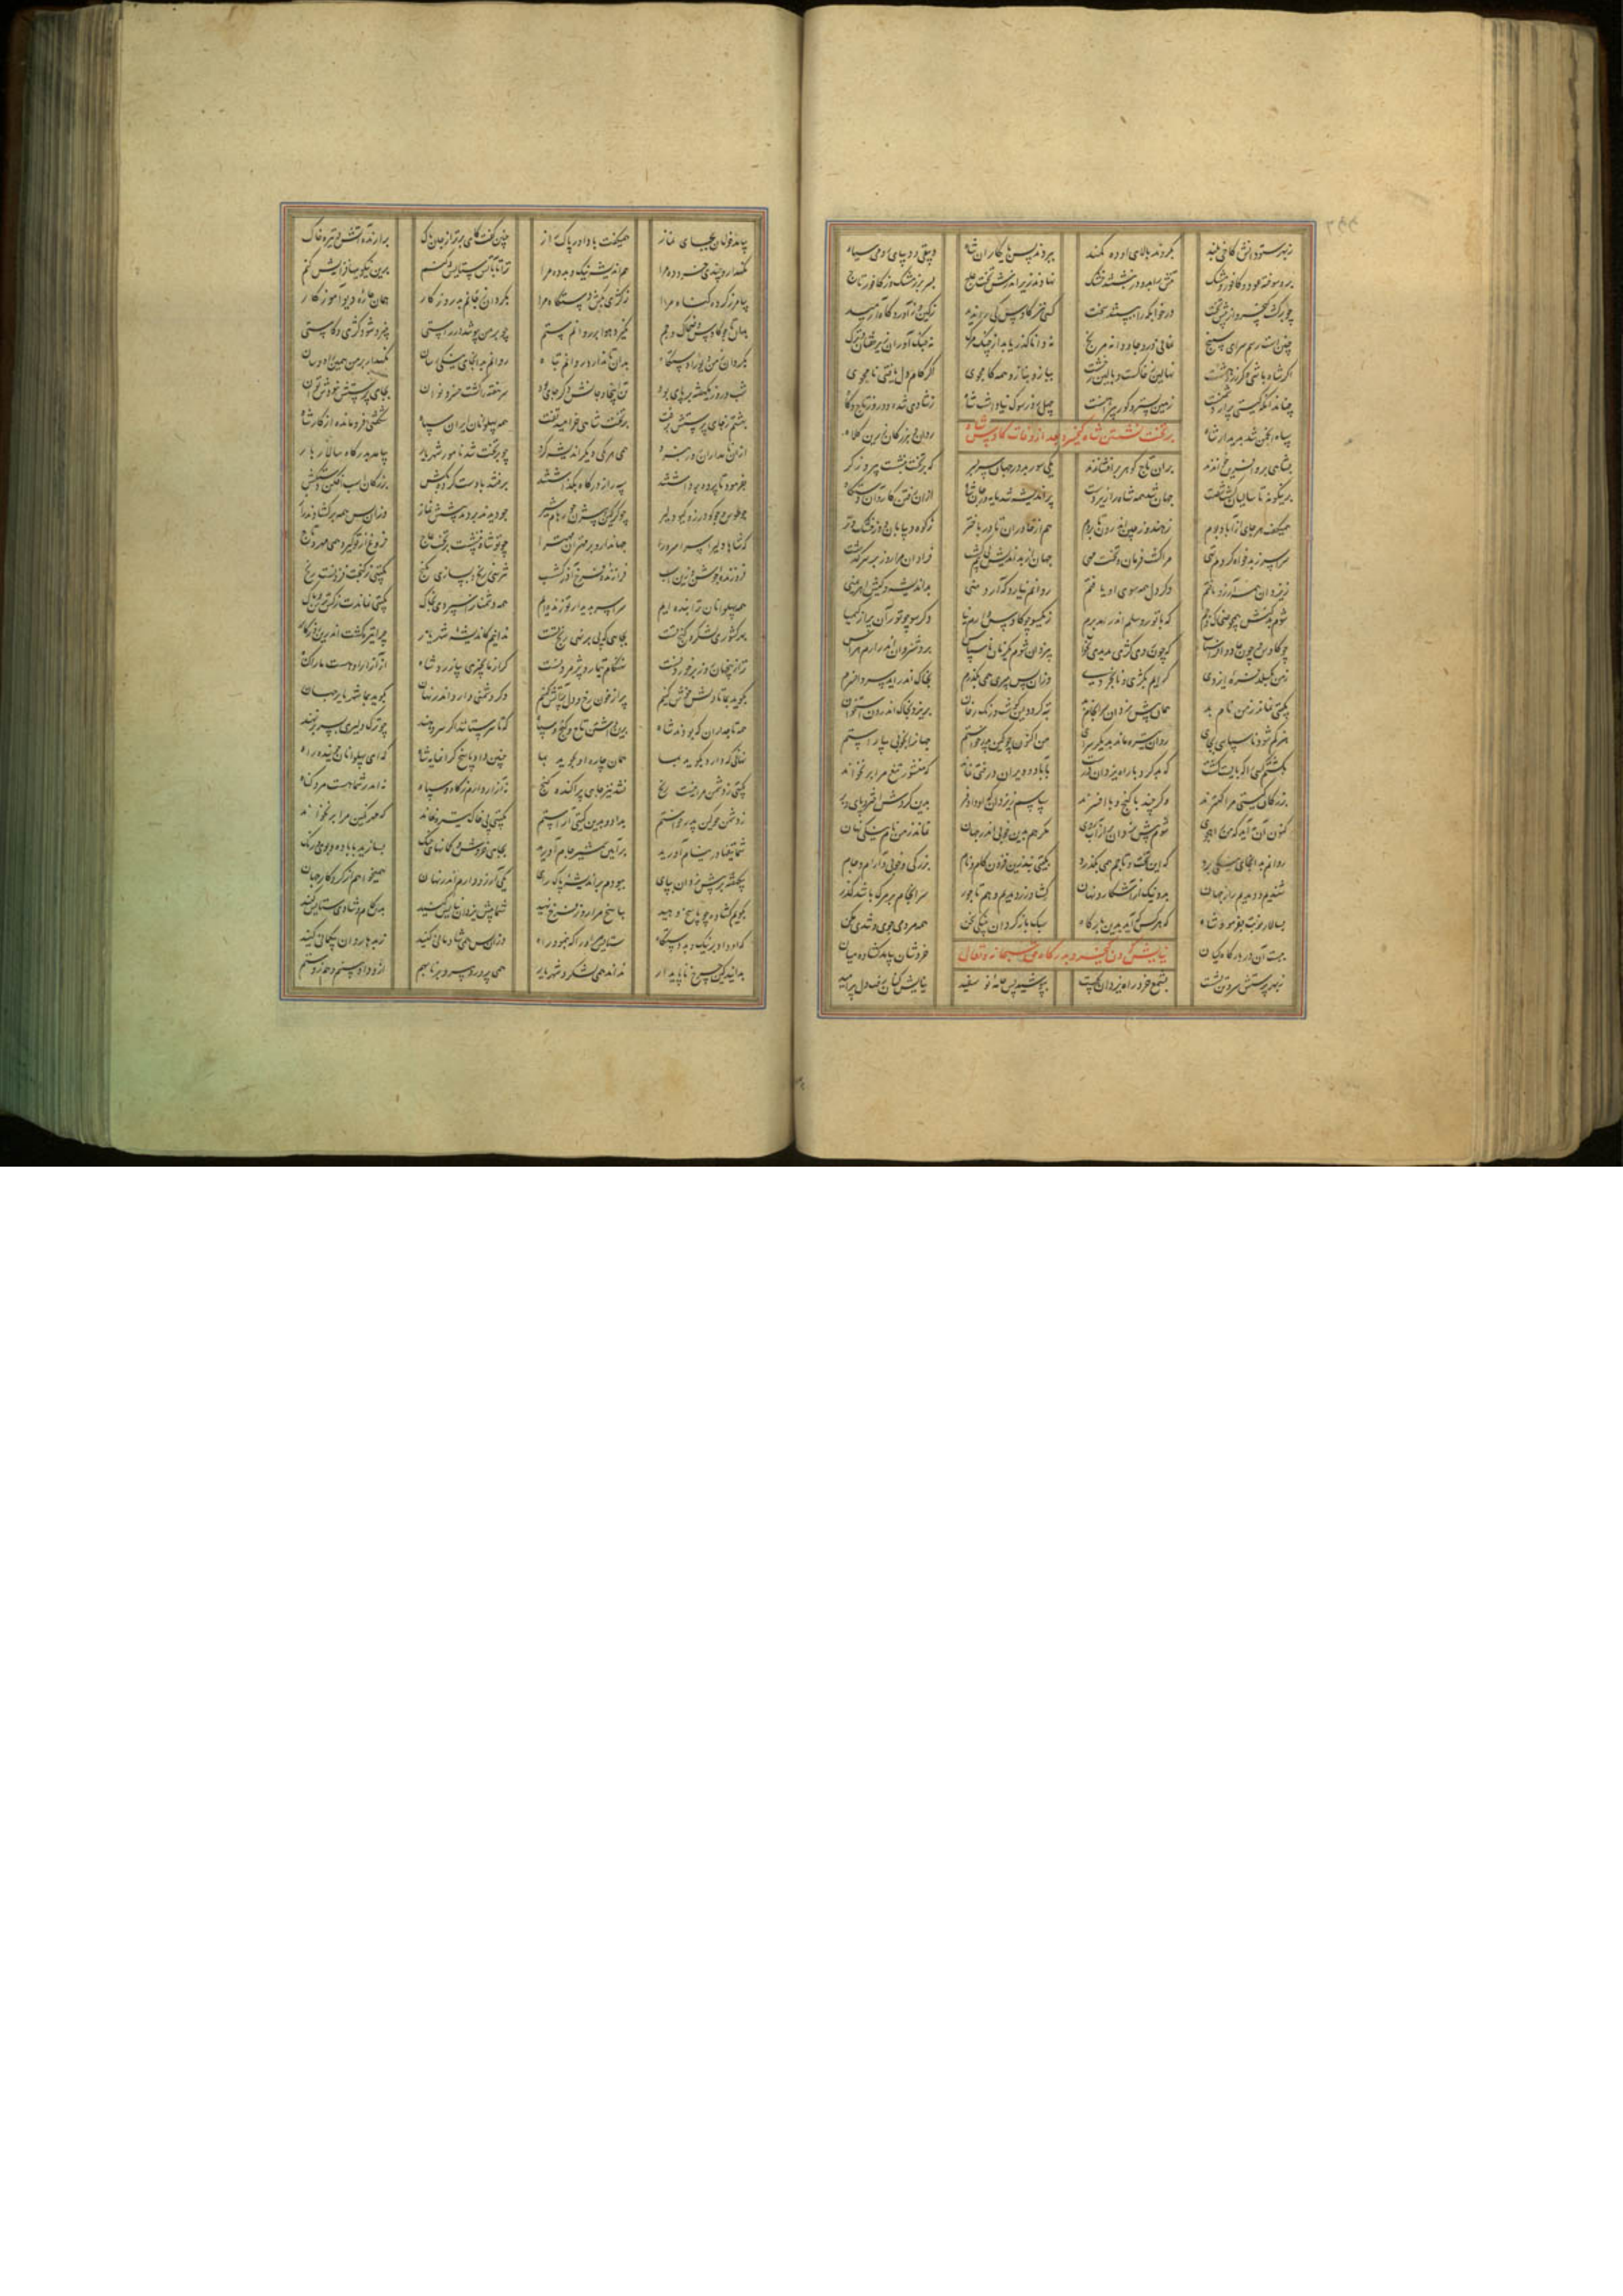 ز بهر ستودانش کاخی بلند بکردند بالای او ده کمند ببردند پس شاه دبیقی و دیبای رومی سیاه
برو سوخته عود و کافور و مشک تنش را بدو در بشستند خشک نهادند زیر اندرش تخت عاج بسر بر ز مشک و ز کافور تاج
چو برگشت کیخسرو از پیش تخت در خوابگه را ببستند سخت کسی نیز کاوس کی را ندید ز کین و ز آوردگاه آرمید
چنین است رسم سرای سپنج نمانی درو جاودانه مرنج نه دانا گذر یابد از چنگ مرگ نه جنگ آوران زیر خفتان و ترگ
اگر شاه باشی و گر زردهشت نهالین ز خاکست و بالین ز خشت بیاز و بناز و همه کام جوی اگر کام دل یافتی نام جوی
چنان دان که گیتی ترا دشمنست زمین بستر و گور پیراهنست چهل روز سوک نیا داشت شاه ز شادی شده دور وز تاج و گاه
بر تخت نشستن شاه کیخسرو بعد از وفات کاوس شاه
سپاه انجمن شد بدربار شاه ردان و بزرگان زرین کلاه
بشاهی برو آفرین خواندند بران تاج گوهر برافشاندند یکی سور بد در جهان سر بسر که بر تخت بنشست پیروزگر
برینگونه تا سالیان گشت شصت جهان شد همه شاه را زیردست پراندیشه شد مایه ور جان شاه ازان رفتن کار و آن دستگاه
همیگفت هر جای ازآباد بوم ز هند و ز چین اندرون تا بروم هم از خاوران تا در باختر ز کوه و بیابان و ز خشک و تر
سراسر ز بدخواه کردم تهی مرا گشت فرمان و تخت مهی جهان از بداندیش بی بیم گشت فراوان مرا روز بر سر گذشت
ز یزدان همه آرزو یافتم وگر دل همه سوی او تافتم روانم نباید که آرد منی بداندیشی و کیش اهرمنی
شوم بدکنش همچو ضحاک و جم که با تور و سلم اندر آمد ز یکسو چو کاوس دارم نیا وگر سو چو توران پر از کیمیا
چو کاوس و چون جادو افراسیاب که جز روی کژی ندیدی بخواب بیزدان شوم یک زمان ناسپاس بروشن روان اندر آرم هراس
ز من بگسلد فره ایزدی گر آیم بکژی و نابخردی وزان پس بر همی بگذرم بخاک اندر آید سر و افسرم
بگیتی بماند ز من نام بد همان پیش یزدان سرانجام بد تبه گردد این گوشت و رنگ رخان بریزد بخاک اندرون استخوان
هنر کم شود ناسپاسی بجای روان تیره ماند بدیگر سرای من اکنون چو کین پدر خواستم جهانرا بخوبی بیاراستم
بکشتم کسی را که بایست کشت که بد کژ و با راه یزدان درشت بآباد و ویران درختی نماند که منشور تیغ مرا بر نخواند
بزرگان گیتی مرا کهترند وگر چند با گنج و با افسرند سپاسم ز یزدان که او داد فر بدین گردش اختر و پای و پر
کنون آن به آید که من راه جوی شوم پیش یزدان پر از آب روی مگر هم بدین خوبی اندر جهان نماند ز من نام نیکی نهان
روانم بدانجای نیکی برد که این تخت و تاج مهی بگذرد بگیتی نبیند فزون کام و نام بزرگی و خوبی و آرام و جام
شنیدیم و دیدیم راز جهان بد و نیک از آشکار و نهان کشاورز دیدیم و هم تاجور سرانجام بر مرگ باشد گذر
بسالار نوبت بفرمود شاه که هر کس که آید بدین بارگاه سبک باز گردان بنیکی سخن همه مردمی جوی و تندی مکن
ببست آن در بارگاه کیان خروشان بیامد گشاده میان
نیایش کردن کیخسرو بدرگاه حق سبحانه و تعالی
ز بهر پرستش سر و تن بشست بشمع خرد راه یزدان بجست بپوشید پس جامه نو سفید نیایش کنان رفت دل پر امید
بیامد خرامان بجای نماز همیگفت با داور پاک راز چنین گفت کای برتر از جان پاک برآرنده آتش از تیره خاک
نگهدار و چندی خرد ده مرا هم اندیشه نیک و بد ده مرا ترا تا بباشم ستایش کنم برین نیکویها فزایش کنم
بیامرز کرده گناه مرا ز کژی بکش دستگاه مرا بگردان ز جانم بد روزگار همان چاره دیو آموزگار
بدان تا چو کاوس و ضحاک و جم نگیرد هوا بر روانم ستم چو بر من بپوشد در راستی بنیرو شود کژی و کاستی
بگردان ز من دیو را دستگاه بدان تا ندارد روانم تباه روانم بدانجای نیکی رسان نگهدار بر من همین راه و سان
شب و روز یکهفته بر پای بود تن اینجا و جانش دگر جای بود سر هفته را گشت خسرو نوان بجای پرستش نبودش توان
بهشتم ز جای پرستش برفت بر تخت شاهی خرامید تفت همه پهلوانان ایران سپاه شگفتی فرومانده از کار شاه
ازان نامداران روز نبرد همی هر یکی دیگر اندیشه کرد چو بر تخت شد نامور شهریار بیامد بدرگاه سالار بار
بفرمود تا پرده برداشتند سپه را ز درگاه بگذاشتند برفتند با دست کرده بکش بزرگان اسب افکن و شیرفش
چو طوس و چو گودرز و گیو دلیر چو گرگین و بیژن چو رهام شیر چو دیدند بردند پیشش نماز وزان پس همه برگشادند راز
که شاها دلیرا سرا سرورا جهاندار و بر مهتران مهترا چو تو شاه ننشست بر تخت عاج فروغ از تو گیرد همی مهر و تاج
فروزنده جوشن و زین اسب فرازنده فرخ آذرگشسب نترسی ز رنج و نسازی بگنج بگیتی ز گنجت فزونست رنج
همه پهلوانان ترا بنده ایم سراسر بدیدار تو زنده ایم همه دشمنانرا سپردی بخاک بگیتی نماندت ز کس ترس و باک
بهر کشوری لشکر و گنج تست بجایی که پی بر نهی رنج تست ندانیم کاندیشه شهریار چرا تیره گشت اندرین روزگار
ترا زین جهان روز برخوردنست نه هنگام تیمار و پژمردنست گر از ما بچیزی بیازرد شاه از آزار او هست ما را گناه
بگوید بما تا دلش خوش کنیم پر از خون رخ و دل پر آتش کنیم وگر دشمنی دارد اندر نهان بگوید بما شهریار جهان
همه تاجداران که بودند شاه بدین داشتند تاج و گنج و سپاه که تا سر ستانند اگر سر دهند چو ترگ دلیری بسر بر نهند
نهانی که دارد بگوید بما همان چاره او بجوید بما چنین داد پاسخ گرانمایه شاه که ای پهلوانان جوینده راه
بگیتی ز دشمن مرا نیست رنج نشد نیز جایی پراکنده گنج نه آزار دارم ز کار سپاه نه اندر شما هست مرد گناه
ز دشمن چو کین پدر خواستم بداد و بدین گیتی آراستم بگیتی پی خاک تیره نماند که مهر نگین مرا بر نخواند
شما تیغها در نیام آورید شمشیر جام آورید بجای خروش کمانهای چنگ بسازید با باده و بوی و رنگ
بیکهفته بر پیش یزدان بپای ببودم باندیشه پاک رای یکی آرزو دارم اندر نهان همیخواهم از کردگار جهان
بگویم گشاده چو پاسخ دهید بپاسخ مرا روز فرخ نهید شما پیش یزدان نیایش کنید بدین کام و شادی ستایش کنید
که او داد بر نیک و بد دستگاه ستایش مر او را که بنمود راه وزان پس بمن شادمانی کنید ز بدها روان بیگمانی کنید
بدانید کین چرخ ناپایدار نداند همی لشکر و شهریار همی پرورد پیر و برنا بهم ازو داد بینم و هم زو ستم